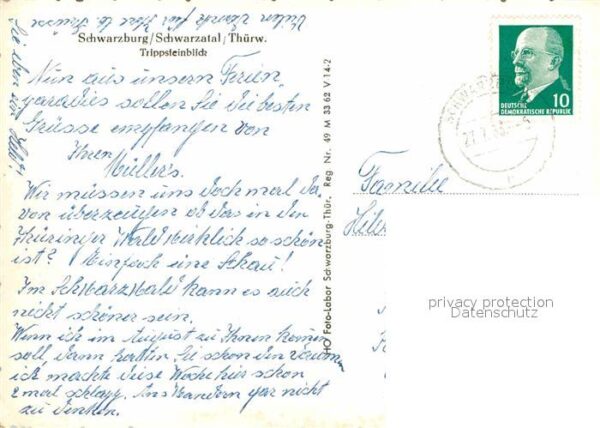 Vielen Dank für Ihre lb. Grüsse
Schwarzburg/Schwarzatal/Thürw.
Trippsteinblick
Nun aus unserm Ferien
paradies sollen Sie die besten
Grüsse empfangen von
Ihren
Müller's.
Wir müssen uns doch mal da
von überzeugen ob das in den
Thüringer Wald wirklich so schön
ist? Einfach eine Schau!
Im Schwarzwald kann es auch
nicht schöner sein.
Wenn ich im August zu Ihnen kommen
soll dann hätten Sie schon den
ich machte diese Woche hier schon
2 mal schlapp. Ans Wandern gar nicht
zu denken.
HO Foto-Labor Schwarzburg-Thür. Reg Nr. 49 M 33 63 V 14-2
DEUTSCHE
DEMOKRATISCHE REPUBLIK
10
Familie
privacy protection
Datenschutz